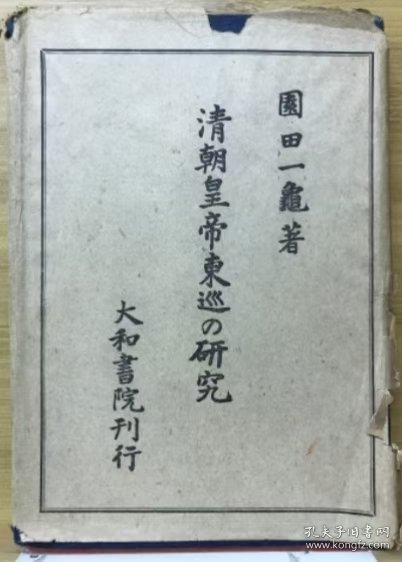 園田一龜著
清朝皇帝東巡の研究
大和書院刊行
孔夫子旧书网
www.kongfz.com